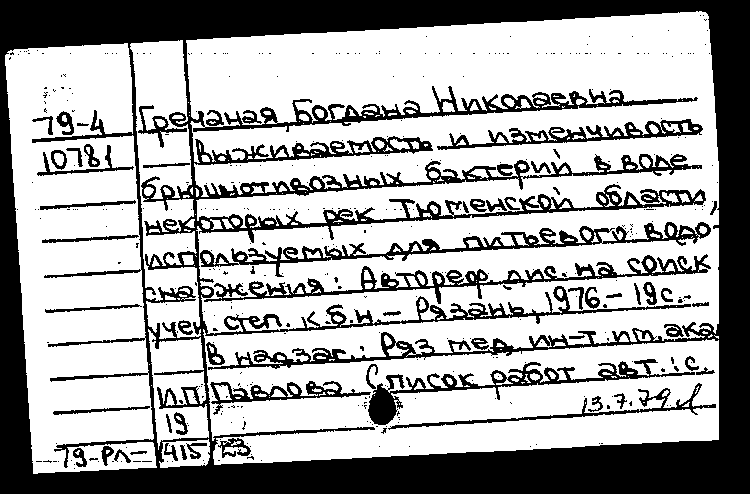 79-4 Гречаная, Богдана Николаевна
10781 Выживаемость и изменчивость
брюшнотивозных бактерий в воде
некоторых рек Тюменской области,
используемых для питьевого водо-
снабжения: Автореф. дис. на соиск
учен. степ. к.б.н. - Рязань, 1976. - 19 с. -
В надзаг.: Ряз мед. ин-т. им. ака
И.П. Павлова. Список работ авт.: с.
19 13.7.79
79-Рл- 1415